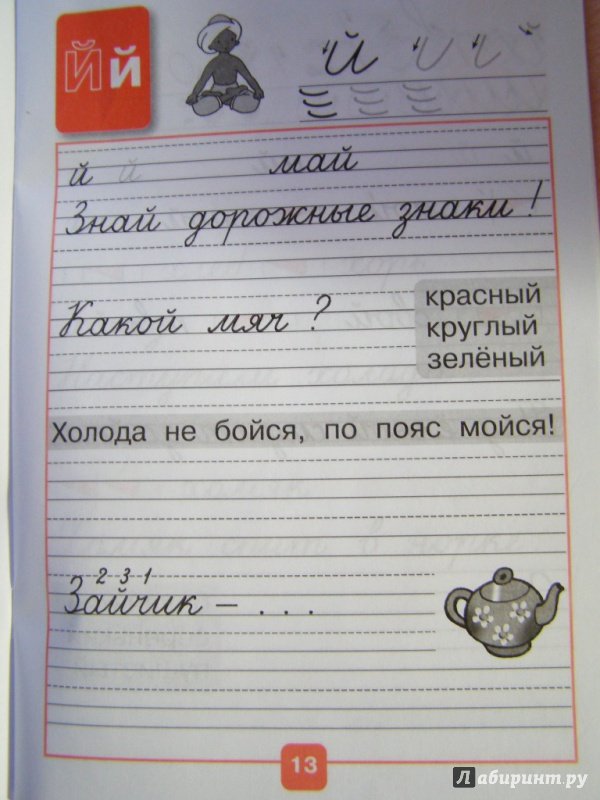 Й й
й й май
Знай дорожные знаки!
Какой мяч?
красный
круглый
зелёный
Холода не бойся, по пояс мойся!
2 3 1
Зайчик – . . .
13
Лабиринт.ру